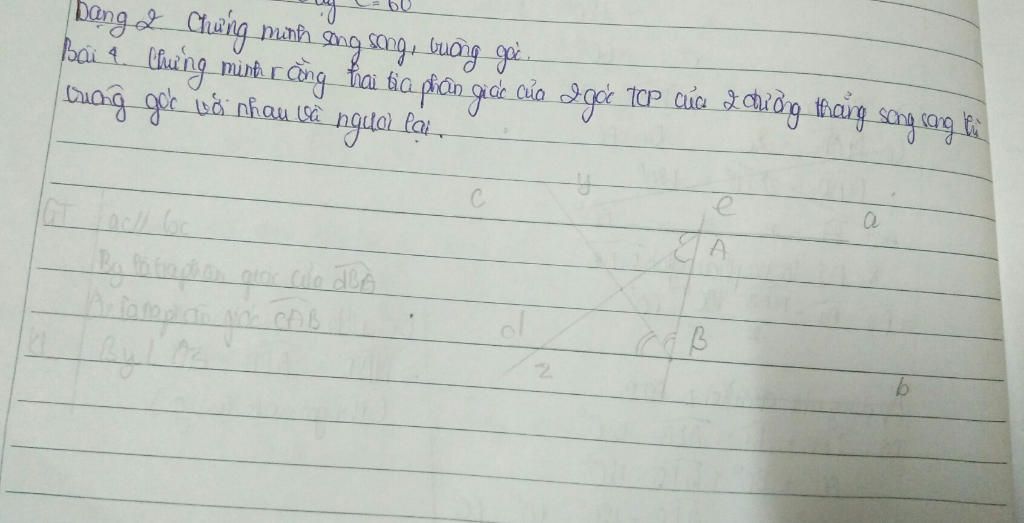 C = 60
Dạng 2 Chứng minh song song, vuông góc.
Bài 4. Chứng minh rằng hai tia phân giác của 2 góc TCP của 2 đường thẳng song song thì
vuông góc với nhau và ngược lại.
c y e a
GT ac // bc
A
By là tia phân giác của dBA
Az là tia phân giác CAB
d B
KL By ⊥ Az
z b